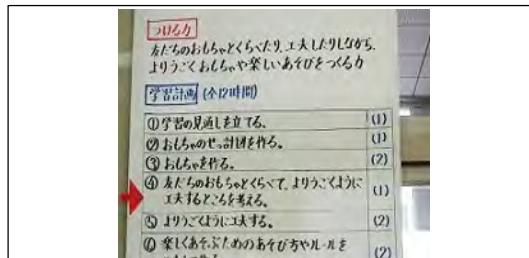 つける力
友だちのおもちゃとくらべたり、工夫したりしながら、
よりうごくおもちゃや楽しいあそびをつくる力
学習計画 (全12時間)
①学習の見通しを立てる。 (1)
②おもちゃのせっ計図を作る。 (1)
③おもちゃを作る。 (2)
④友だちのおもちゃとくらべて、よりうごくように
工夫するところを考える。 (1)
⑤よりうごくように工夫する。 (2)
⑥楽しくあそぶためのあそび方やルールを (2)